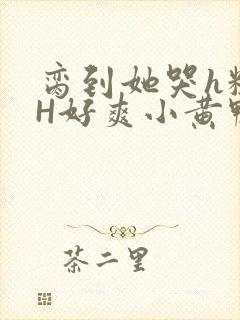 弯到她哭h粗
H好爽小黄鸭
茶二里